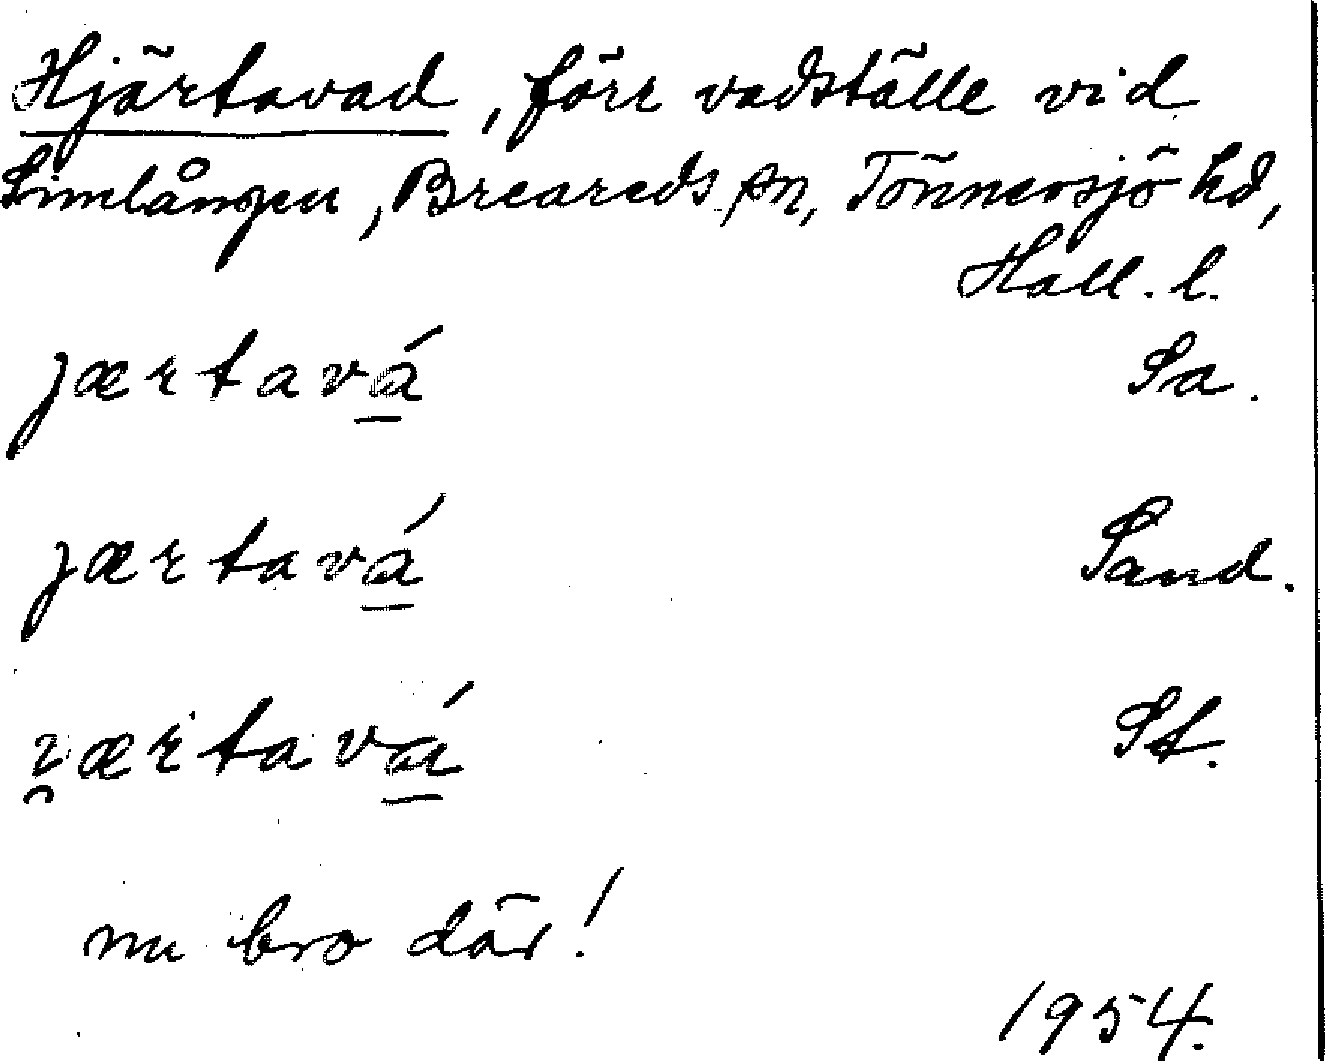 Hjärtavad, förr vadställe vid
Simlången, Breareds sn, Tönnersjö hd,
Hall. l.
jærtavá Sa.
jærtavá Sand.
ı̯ærtavá St.
nu bro där!
1954.